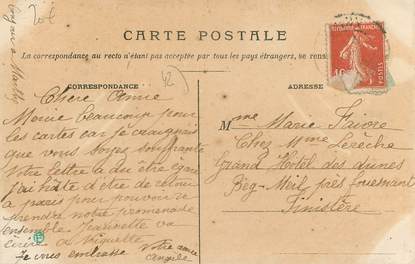 CARTE POSTALE
La correspondance au recto n'étant pas acceptée par tous les pays étrangers, se
CORRESPONDANCE
ADRESSE
Chère amie
Merci beaucoup pour
les cartes car je craignais
que vous soyez souffrante
Votre lettre a du être égaré
j'ai hâte d'être de retour
à paris pour pouvoir re
prendre notre promenade
ensemble.
Je vous embrasse Votre amie
Angèle
Mme Marie
Chez Mme
Grand Hotel des dunes
Beg-Meil près Fouesnant
Finistère
REPUBLIQUE FRANÇAISE
10
POSTES